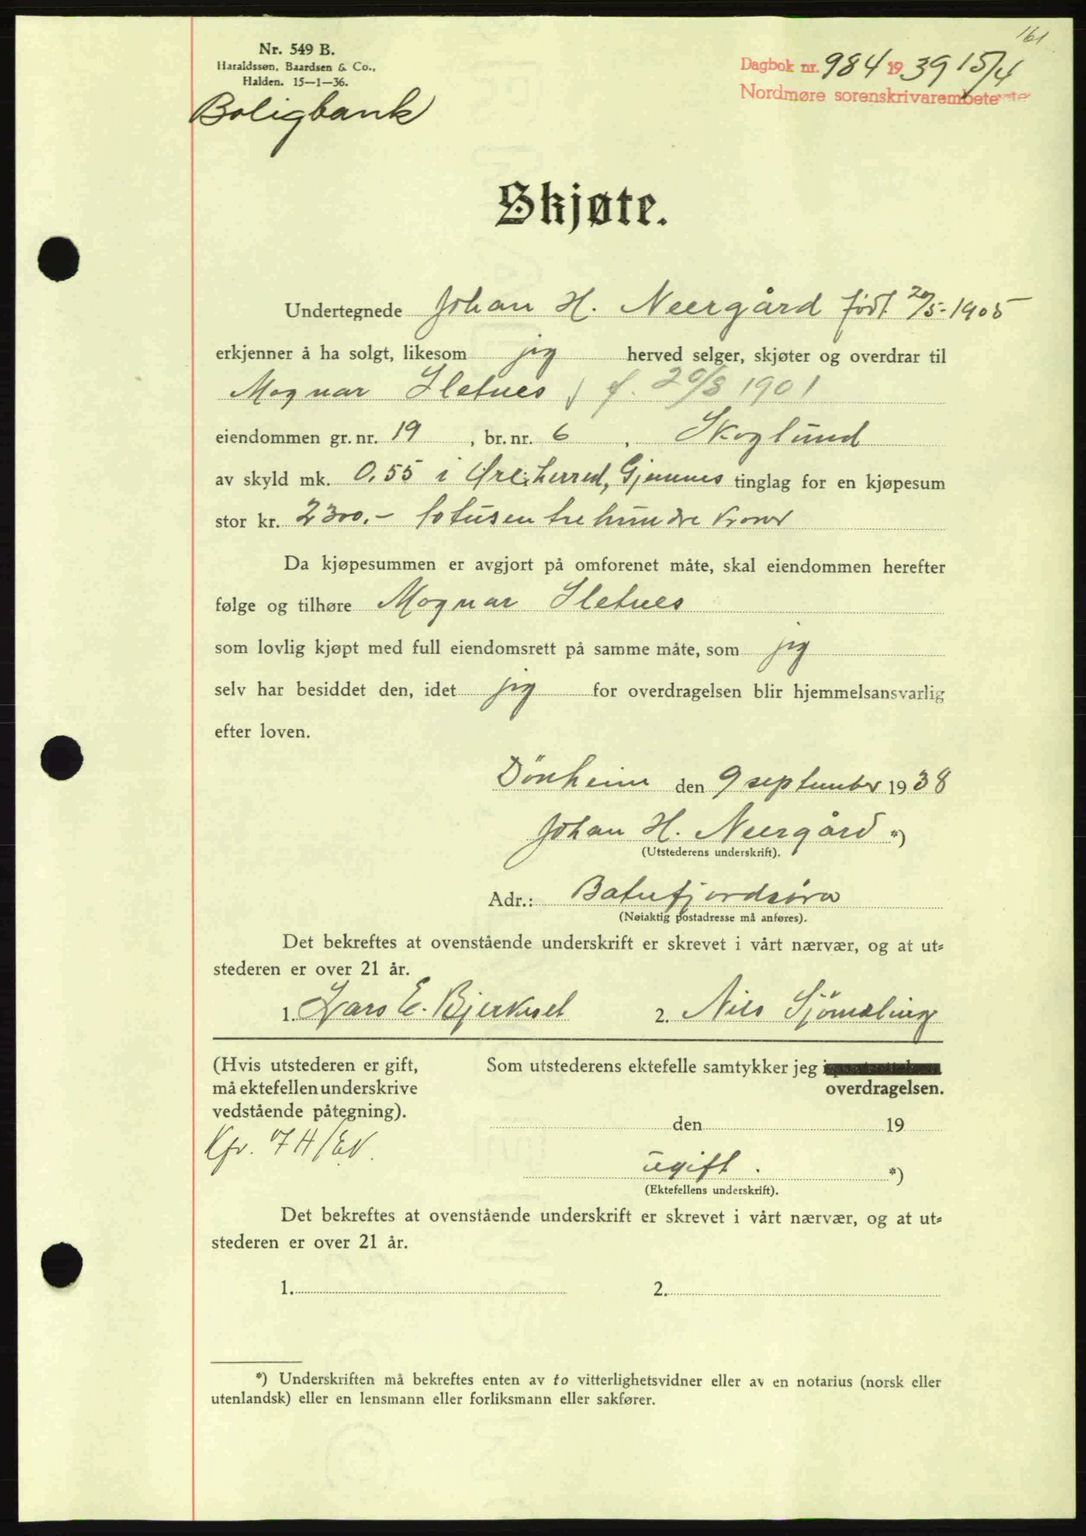 161
Nr. 549 B.
Haraldssøn, Baardsen & Co.,
Halden. 15—1—36.
Boligbank
Dagbok nr. 984 1939 15/4
Nordmøre sorenskrivarembete
Skjøte.
Undertegnede Johan H. Neergård født 20/5-1905
erkjenner å ha solgt, likesom jig herved selger, skjøter og overdrar til
Magnar Sletnes f. 20/8 1901
eiendommen gr. nr. 19, br. nr. 6, Skoglund
av skyld mk. 0,55 i Øre herred, Gjemnes tinglag for en kjøpesum
stor kr. 2300.- totusen trehundre kroner
Da kjøpesummen er avgjort på omforenet måte, skal eiendommen herefter
følge og tilhøre Magnar Sletnes
som lovlig kjøpt med full eiendomsrett på samme måte, som jig
selv har besiddet den, idet jig for overdragelsen blir hjemmelsansvarlig
efter loven.
den 9 september 1938
Johan H. Neergård *)
(Utstederens underskrift).
Adr.: Batnfjordsøra
(Nøiaktig postadresse må anføres).
Det bekreftes at ovenstående underskrift er skrevet i vårt nærvær, og at ut-
stederen er over 21 år.
1. Lars E. 2. Nils
(Hvis utstederen er gift,
må ektefellen underskrive
vedstående påtegning).
Som utstederens ektefelle samtykker jeg i
overdragelsen.
den 19
Kfr. 74/EN.
ugift. *)
(Ektefellens underskrift).
Det bekreftes at ovenstående underskrift er skrevet i vårt nærvær, og at ut-
stederen er over 21 år.
1. 2.
*) Underskriften må bekreftes enten av to vitterlighetsvidner eller av en notarius (norsk eller
utenlandsk) eller en lensmann eller forliksmann eller sakfører.